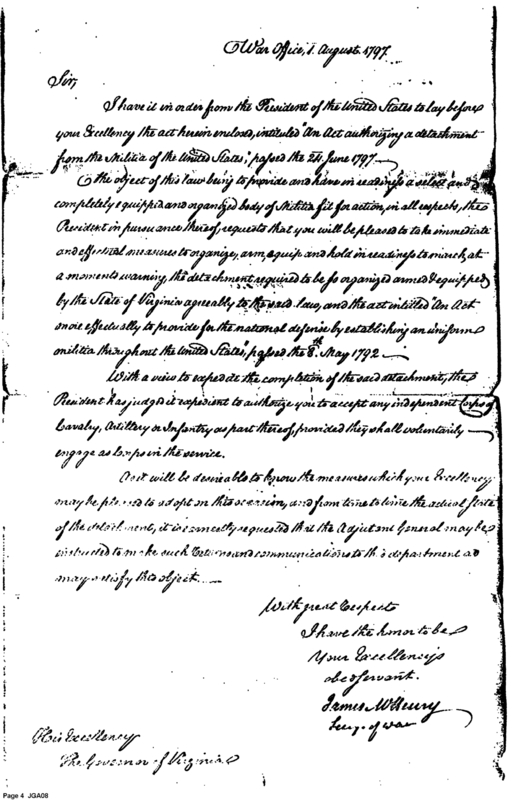 War Office, 1. August. 1797.
Sir,
I have it in order from the President of the United States to lay before
your Excellency the act herein enclosed, intituled "An Act authorizing a detachment
from the Militia of the United States," passed the 24 June 1797.
The object of this law being to provide and have in readiness a select and
completely equipped and organized body of Militia fit for action, in all respects, the
President in pursuance thereof, requests that you will be pleased to take immediate
and effectual measures to organize, arm, equip and hold in readiness to march, at
a moments warning, the detachment required to be so organized armed & equipped
by the State of Virginia agreeably to the said law, and the act intitled "An Act
more effectually to provide for the national defense by establishing an uniform
militia throughout the United States," passed the 8th May 1792
With a view to expedite the completion of the said detachment, the
President has judged it expedient to authorize you to accept any independent Corps of
Cavalry, Artillery or Infantry as part thereof, provided they shall voluntarily
engage as Corps in the service.
As it will be desireable to know the measures which your Excellency
may be pleased to adopt on this occasion, and from time to time the actual State
of the detachment, it is earnestly requested that the Adjutant General may be
instructed to make such Returns and communications to this department as
may satisfy this object.
With great Respect
I have the honor to be
Your Excellency's
obed servant.
James McHenry
Secy. of War
His Excellency
The Governor of Virginia
Page 4 JGA08